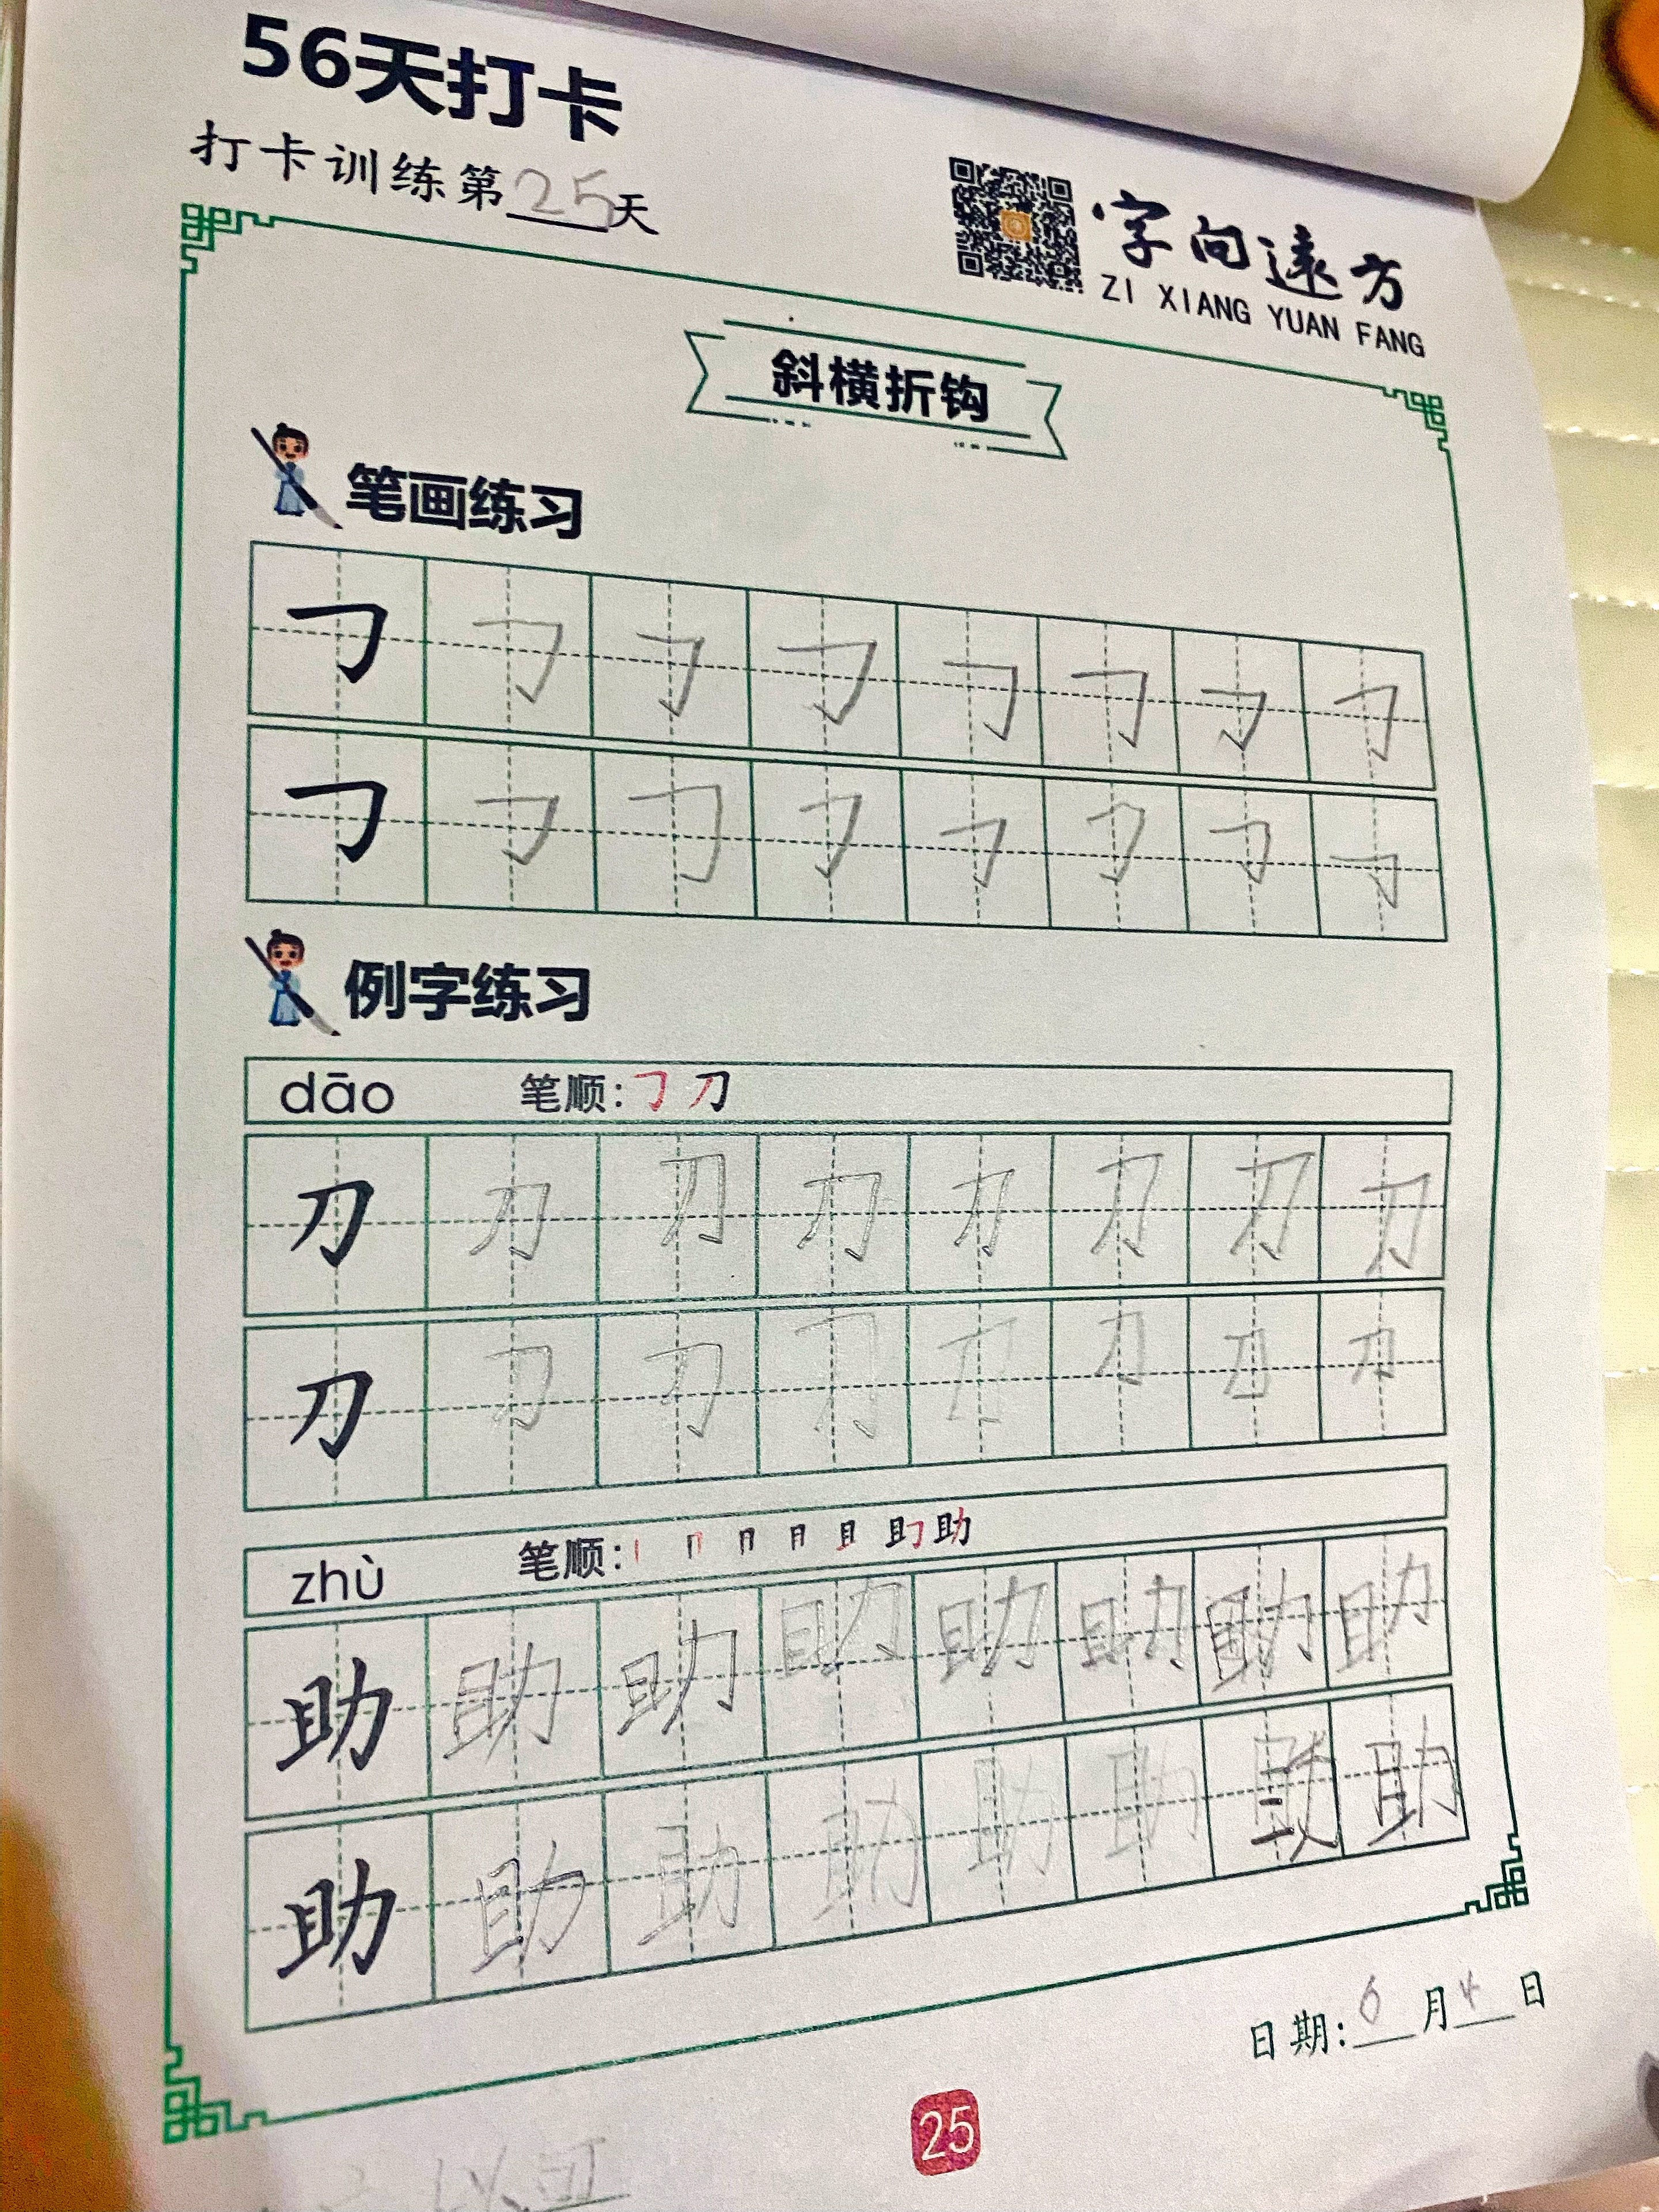 56天打卡
打卡训练第25天
字向遠方
ZI XIANG YUAN FANG
斜横折钩
笔画练习
㇆ ㇆ ㇆ ㇆ ㇆ ㇆ ㇆ ㇆
㇆ ㇆ ㇆ ㇆ ㇆ ㇆ ㇆ ㇆
例字练习
dāo 笔顺: ㇆ 刀
刀 刀 刀 刀 刀 刀 刀 刀
刀 刀 刀 刀 刀 刀 刀 刀
zhù 笔顺: 丨 冂 冃 月 且 助
助 助 助 助 助 助 助 助
助 助 助 助 助 助 助 助
日期: 6月4日
25